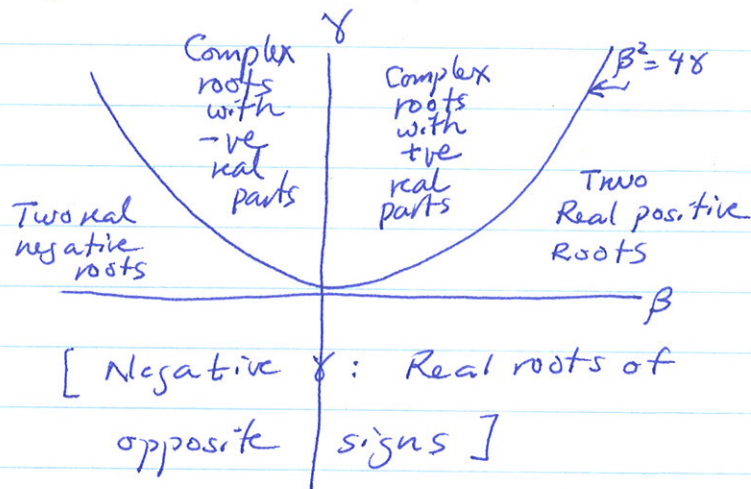 γ
Complex
roots
with
-ve
real
parts
Complex
roots
with
+ve
real
parts
β²=4γ
Two real
negative
roots
Two
Real positive
Roots
β
[ Negative γ : Real roots of
opposite signs ]